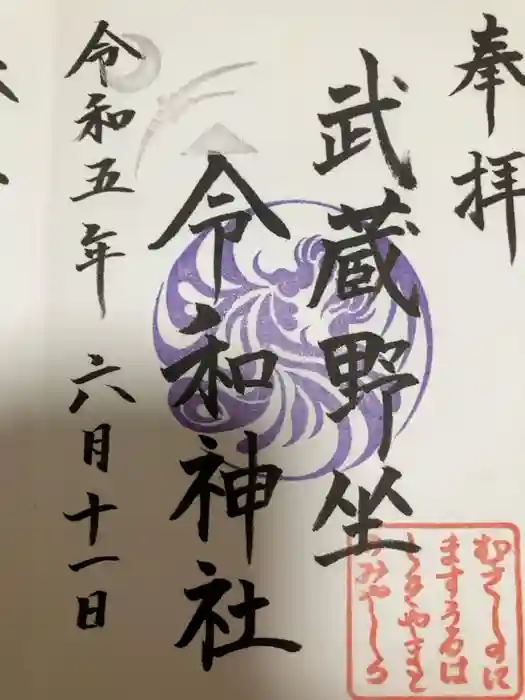 奉拝
武蔵野坐
令和神社
令和五年 六月十一日
むさしのに
ますうるは
しきやまと
のみやしろ